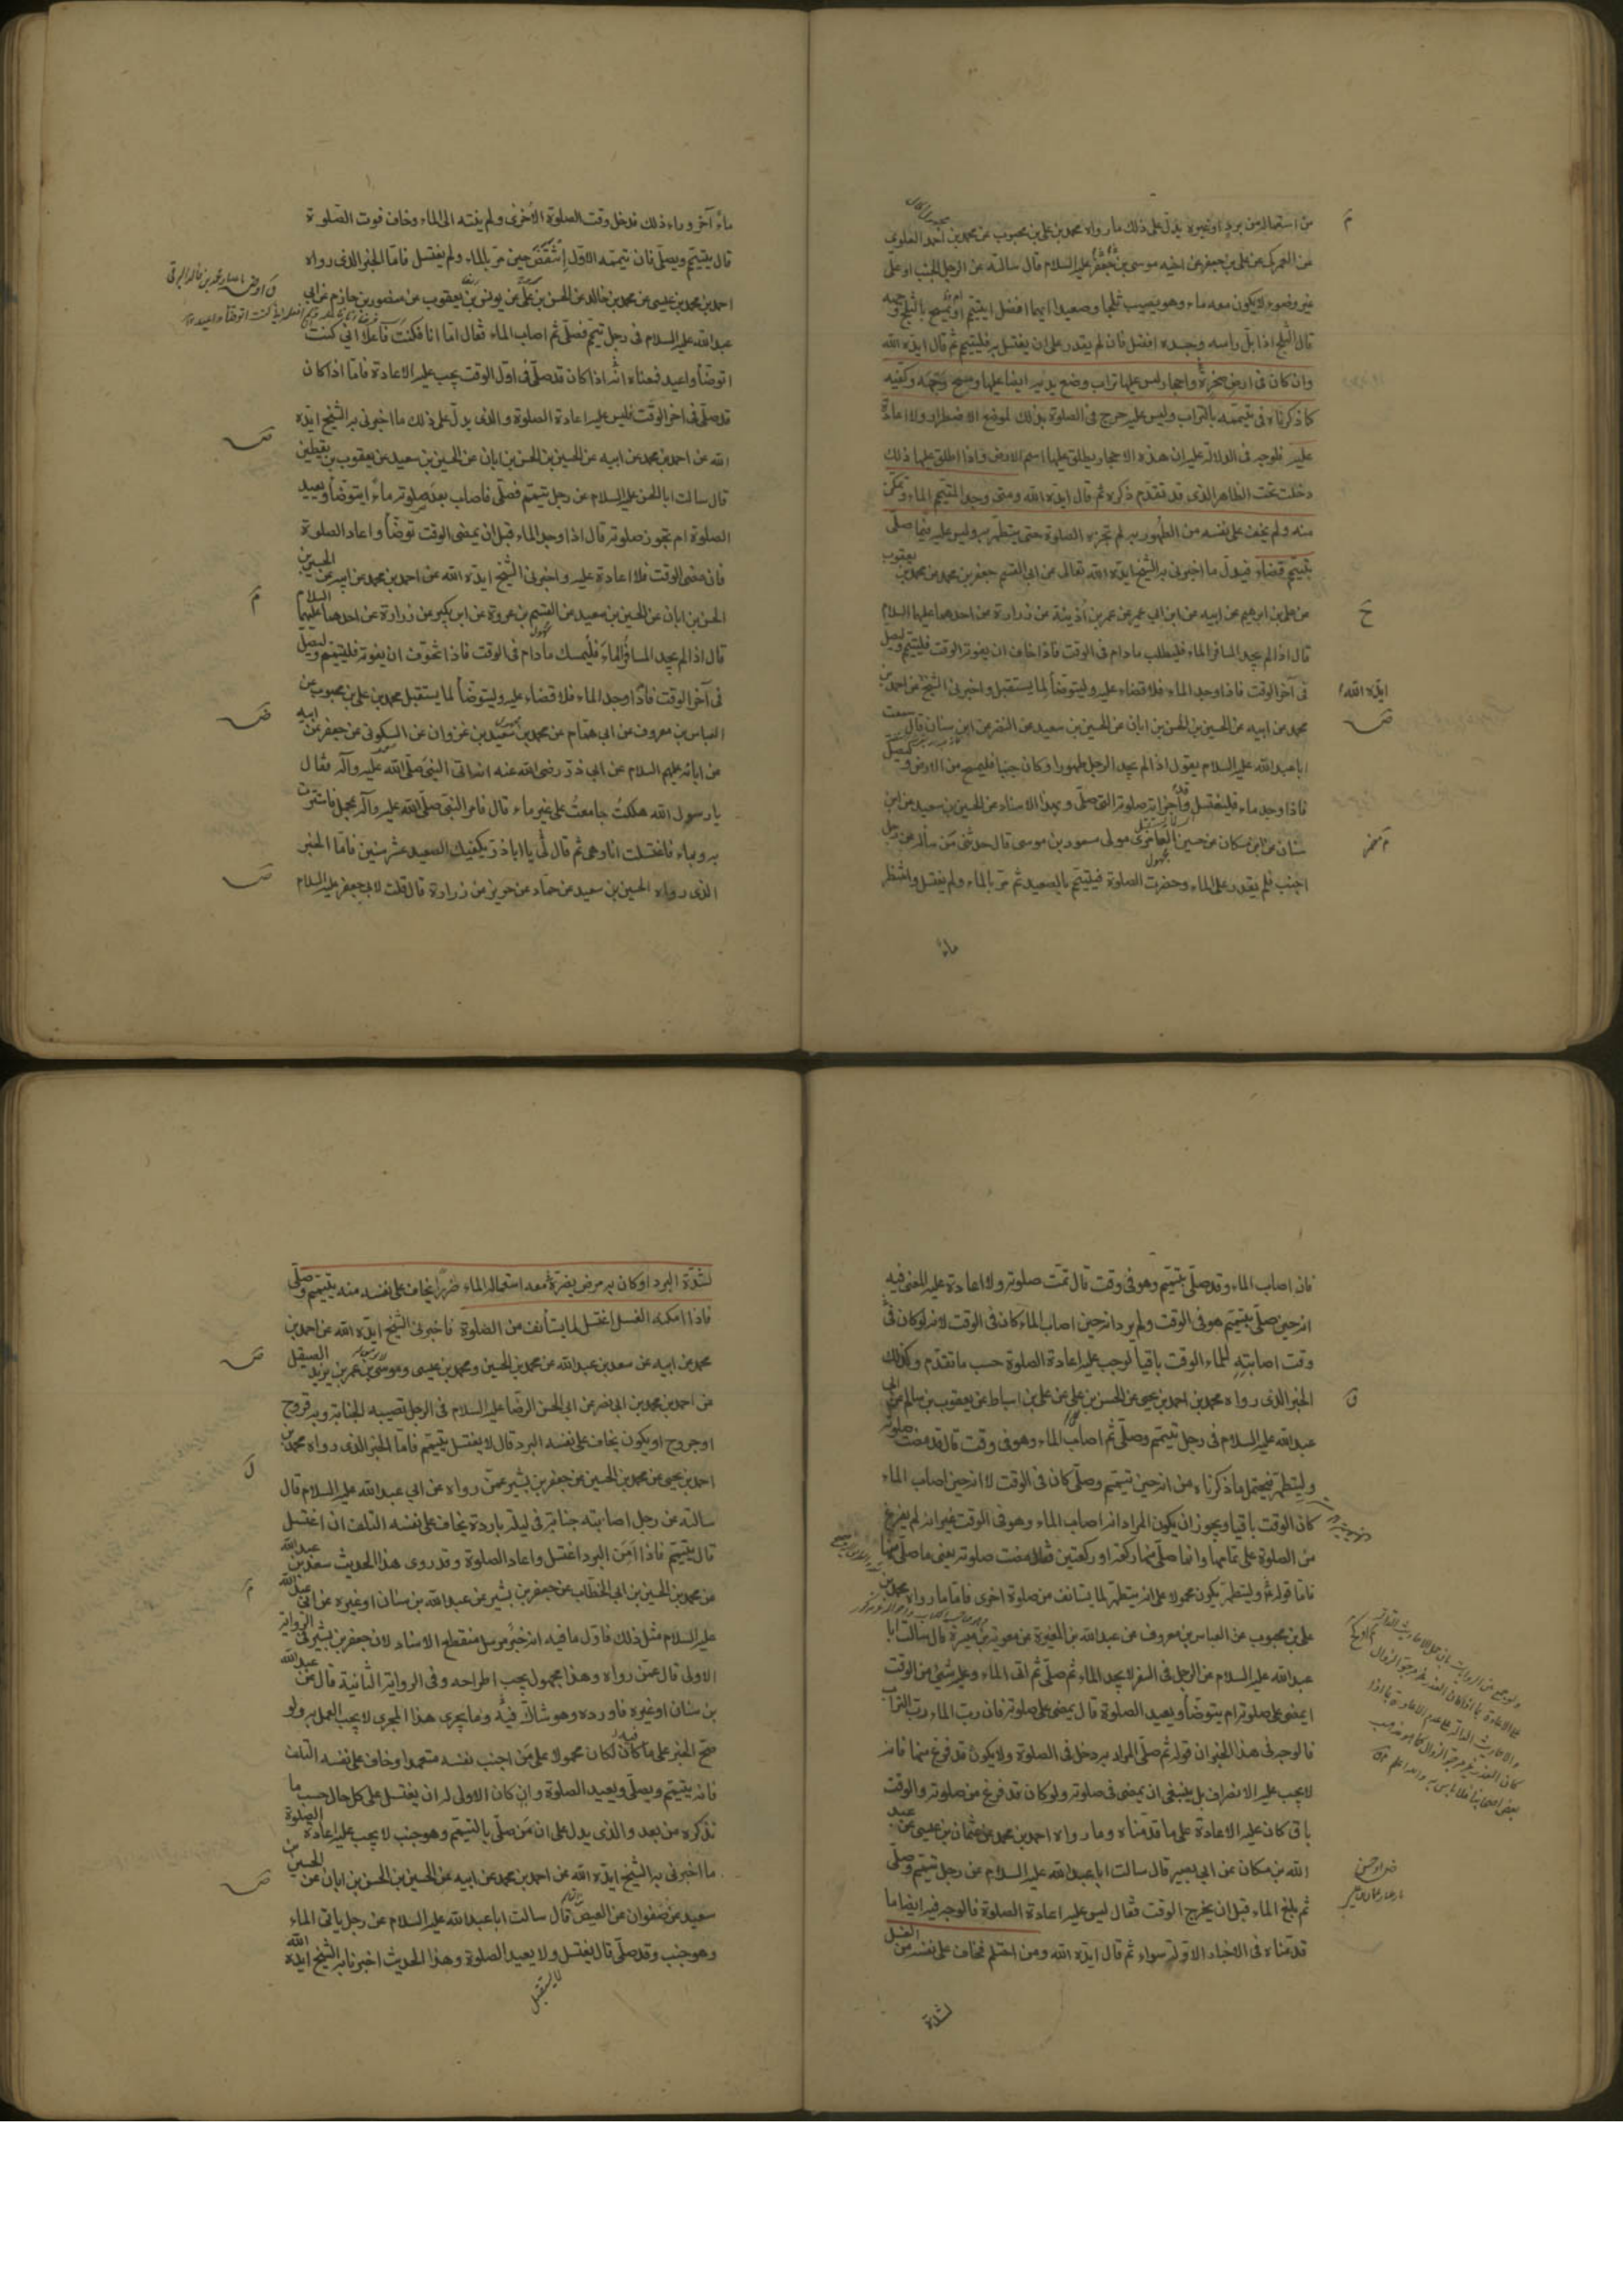 من استعماله من برد او غيره يدل على ذلك ما رواه محمد بن على بن محبوب عن محمد بن احمد العلوى
عن العمركى عن على بن جعفر عن اخيه موسى بن جعفر عليه السلام قال سالته عن الرجل الجنب او على
غير وضوء لا يكون معه ماء وهو يصيب ثلجا وصعيدا ايهما افضل ايتيمم ام يمسح بالثلج وجهه
قال الثلج اذا بل راسه وجسده افضل فان لم يقدر على ان يغتسل به فليتيمم ثم قال ايده الله
وان كان فى ارض صخرة واحجار ليس عليها تراب وضع يديه ايضا عليها ومسح وجهه وكفيه
كما ذكرناه فى تيممه بالتراب وليس عليه حرج فى الصلوة بذلك لموضع الاضطرار ولا اعادة
عليه فالوجه فى الدلالة عليه ان هذه الاحجار يطلق عليها اسم الارض واذا اطلق عليها ذلك
دخلت تحت الظاهر الذى قد تقدم ذكره ثم قال ايده الله ومتى وجد المتيمم الماء وتمكن
منه ولم يخف على نفسه من الطهور به لم تجزه الصلوة حتى يتطهر به وليس عليه فيما صلى
بتيمم قضاء فيدل ما اخبرنى به الشيخ ايده الله تعالى عن ابى القسم جعفر بن محمد عن محمد بن يعقوب
عن على بن ابرهيم عن ابيه عن ابن ابى عمير عن عمر بن اذينة عن زرارة عن احدهما عليهما السلام
قال اذا لم يجد المسافر الماء فليطلب ما دام فى الوقت فاذا خاف ان يفوته الوقت فليتيمم وليصل
فى آخر الوقت فاذا وجد الماء فلا قضاء عليه وليتوضأ لما يستقبل واخبرنى الشيخ عن احمد بن
ايده الله
محمد عن ابيه عن الحسين بن الحسن بن ابان عن الحسين بن سعيد عن النضر عن ابن سنان قال سمعت
ابا عبد الله عليه السلام يقول اذا لم يجد الرجل طهورا وكان جنبا فليمسح من الارض وليصل
فاذا وجد ماء فليغتسل وقد اجزاته صلوته التى صلى وبهذا الاسناد عن الحسين بن سعيد عن ابن
سنان عن ابن مسكان عن حسين العامرى مولى مسعود بن موسى قال حدثنى من ساله عن رجل
اجنب فلم يقدر على الماء وحضرت الصلوة فيتيمم بالصعيد ثم مر بالماء ولم يغتسل وانتظر
ماء
ماء آخر وراء ذلك فدخل وقت الصلوة الاخرى ولم ينته الى الماء وخاف فوت الصلوة
قال يتيمم ويصلى فان تيممه الاول انتقض حين مر بالماء ولم يغتسل فاما الخبر الذى رواه
احمد بن محمد بن عيسى عن محمد بن خالد عن الحسن بن على عن يونس بن يعقوب عن منصور بن حازم عن ابى
عبد الله عليه السلام فى رجل تيمم فصلى ثم اصاب الماء فقال اما انا فكنت فاعلا انى كنت
اتوضأ واعيد فمعناه انه اذا كان قد صلى فى اول الوقت يجب عليه الاعادة فاما اذا كان
قد صلى فى اخر الوقت فليس عليه اعادة الصلوة والذى يدل على ذلك ما اخبرنى به الشيخ ايده
الله عن احمد بن محمد عن ابيه عن الحسين بن الحسن بن ابان عن الحسين بن سعيد عن يعقوب بن يقطين
قال سالت ابا الحسن عليه السلام عن رجل تيمم فصلى فاصاب بعد صلوته ماء ايتوضأ ويعيد
الصلوة ام تجوز صلوته قال اذا وجد الماء قبل ان يمضى الوقت توضأ واعاد الصلوة
فان مضى الوقت فلا اعادة عليه واخبرنى الشيخ ايده الله عن احمد بن محمد عن ابيه عن الحسين بن
الحسن بن ابان عن الحسين بن سعيد عن القسم بن عروة عن ابن بكير عن زرارة عن احدهما عليهما السلام
قال اذا لم يجد المسافر الماء فليمسك ما دام فى الوقت فاذا تخوف ان يفوته فليتيمم وليصل
فى آخر الوقت فاذا وجد الماء فلا قضاء عليه وليتوضأ لما يستقبل محمد بن على بن محبوب عن
العباس بن معروف عن ابى همام عن محمد بن سعيد بن غزوان عن السكونى عن جعفر عن ابيه
عن ابائه عليهم السلام عن ابى ذر رضى الله عنه انه اتى النبى صلى الله عليه وآله فقال
يا رسول الله هلكت جامعت على غير ماء قال فامر النبى صلى الله عليه وآله بمحمل فاستترت
به وبماء فاغتسلت انا وهى ثم قال لى يا اباذر يكفيك الصعيد عشر سنين فاما الخبر
الذى رواه الحسين بن سعيد عن حماد عن حريز عن زرارة قال قلت لابى جعفر عليه السلام
فان اصاب الماء وقد صلى بتيمم وهو فى وقت قال تمت صلوته ولا اعادة عليه المعنى فيه
انه حين صلى بتيمم هو فى الوقت ولم يرد انه حين اصاب الماء كان فى الوقت لانه لو كان فى
وقت اصابته للماء الوقت باقيا لوجب عليه اعادة الصلوة حسب ما تقدم وكذلك
الخبر الذى رواه محمد بن احمد بن يحيى عن الحسن بن على عن على بن اسباط عن يعقوب بن سالم عن ابى
عبد الله عليه السلام فى رجل تيمم وصلى ثم اصاب الماء وهو فى وقت قال قد مضت صلوته
وليتطهر فيحتمل ما ذكرناه من انه حين تيمم وصلى كان فى الوقت لا انه حين اصاب الماء
كان الوقت باقيا ويجوز ان يكون المراد انه اصاب الماء وهو فى الوقت غير انه لم يفرغ
من الصلوة على تمامها وانما صلى منها ركعة او ركعتين فقال مضت صلوته يعنى ما صلى منها
فاما قوله وليتطهر يكون محمولا على انه يتطهر لما يستانف من صلوة اخرى فاما ما رواه محمد بن
على بن محبوب عن العباس بن معروف عن عبد الله بن المغيرة عن معوية بن ميسرة قال سالت ابا
عبد الله عليه السلام عن الرجل فى السفر لا يجد الماء ثم صلى ثم اتى الماء وعليه شىء من الوقت
ايمضى على صلوته ام يتوضأ ويعيد الصلوة قال يمضى على صلوته فان رب الماء رب التراب
فالوجه فى هذا الخبر ان قوله ثم صلى المراد به دخل فى الصلوة ولا يكون قد فرغ منها فانه
لا يجب عليه الانصراف بل ينبغى ان يمضى فى صلوته ولو كان قد فرغ من صلوته والوقت
باق كان عليه الاعادة على ما قدمناه وما رواه احمد بن محمد عن عثمان بن عيسى عن عبد
الله بن مسكان عن ابى بصير قال سالت ابا عبد الله عليه السلام عن رجل تيمم وصلى
ثم بلغ الماء قبل ان يخرج الوقت فقال ليس عليه اعادة الصلوة فالوجه فيه ايضا ما
قدمناه فى الاخبار الاولة سواء ثم قال ايده الله ومن احتلم فخاف على نفسه من الغسل
لشدة
لشدة البرد او كان به مرض يضره معه استعمال الماء ضررا يخاف على نفسه منه يتيمم وصلى
فاذا امكنه الغسل اغتسل لما يستأنف من الصلوة فاخبرنى الشيخ ايده الله عن احمد بن
محمد عن ابيه عن سعد بن عبد الله عن محمد بن الحسين ومحمد بن عيسى وموسى بن عمر بن يزيد الصيقل
عن احمد بن محمد بن ابى نصر عن ابى الحسن الرضا عليه السلام فى الرجل تصيبه الجنابة وبه قروح
او جروح او يكون يخاف على نفسه البرد قال لا يغتسل يتيمم فاما الخبر الذى رواه محمد بن
احمد بن يحيى عن محمد بن الحسين عن جعفر بن بشير عمن رواه عن ابى عبد الله عليه السلام قال
سالته عن رجل اصابته جنابة فى ليلة باردة يخاف على نفسه التلف ان اغتسل
قال يتيمم فاذا امن البرد اغتسل واعاد الصلوة وقد روى هذا الحديث سعد بن عبد الله
عن محمد بن الحسين بن ابى الخطاب عن جعفر بن بشير عن عبد الله بن سنان او غيره عن ابى عبد الله
عليه السلام مثل ذلك فاول ما فيه انه خبر مرسل منقطع الاسناد لان جعفر بن بشير فى الرواية
الاولى قال عمن رواه وهذا مجهول يجب اطراحه وفى الرواية الثانية قال عن عبد الله
بن سنان او غيره فاورده وهو شاك فيه وما يجرى هذا المجرى لا يجب العمل به ولو
صح الخبر على ما كان فيه لكان محمولا على من اجنب نفسه متعمدا وخاف على نفسه التلف
فانه يتيمم ويصلى ويعيد الصلوة وان كان الاولى له ان يغتسل على كل حال حسب ما
نذكره من بعد والذى يدل على ان من صلى بالتيمم وهو جنب لا يجب عليه اعادة الصلوة
ما اخبرنى به الشيخ ايده الله عن احمد بن محمد عن ابيه عن الحسين بن الحسن بن ابان عن الحسين بن
سعيد عن صفوان عن العيص قال سالت ابا عبد الله عليه السلام عن رجل ياتى الماء
وهو جنب وقد صلى قال يغتسل ولا يعيد الصلوة وهذا الحديث اخبرنا به الشيخ ايده الله